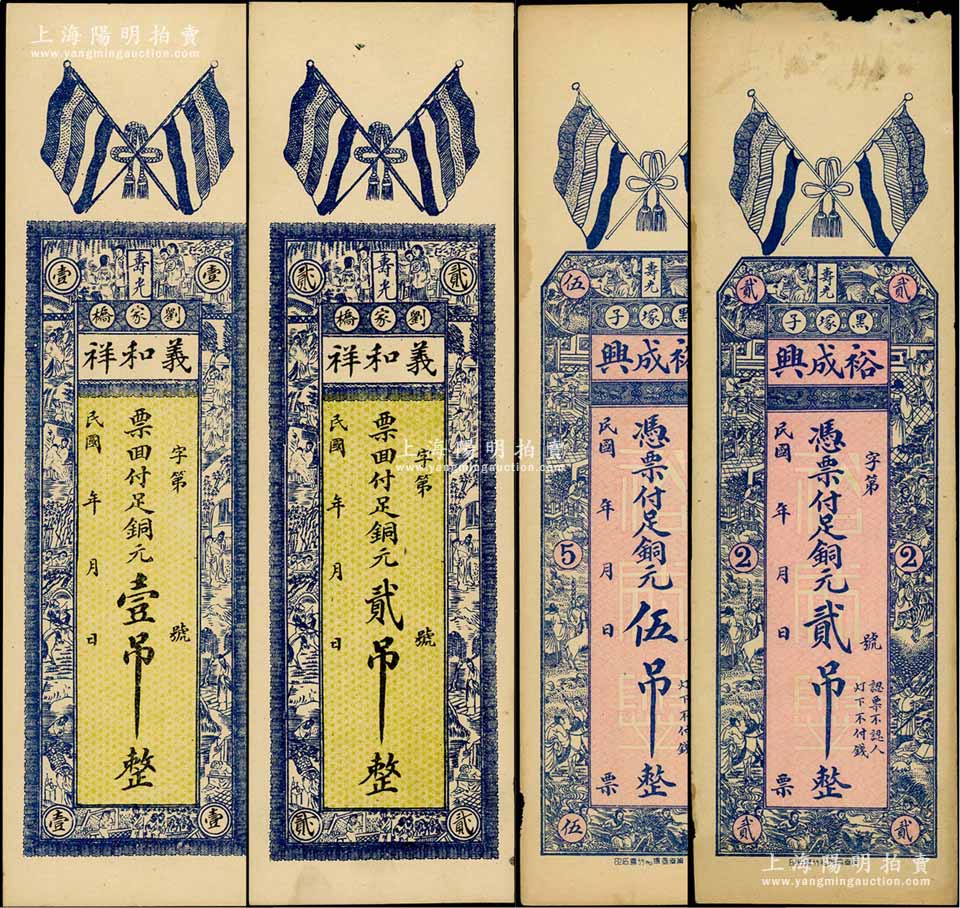 上海陽明拍賣
www.yangmingauction.com
壹
壽光
壹
劉家橋
義和祥
字第 號
票面付足銅元壹吊整
民國 年 月 日
壹
壹
貳
壽光
貳
劉家橋
義和祥
字第 號
票面付足銅元貳吊整
民國 年 月 日
貳
貳
上海陽明拍賣
www.yangmingauction.com
伍
壽光
黑塚子
裕成興
憑票付足銅元伍吊整
民國 年 月 日
票
灯下不付錢
5
伍
貳
壽光
貳
黑塚子
裕成興
字第 號
憑票付足銅元貳吊整
民國 年 月 日
票
認票不認人
灯下不付錢
2
2
貳
貳
上海陽明拍賣
www.yangmingauction.com